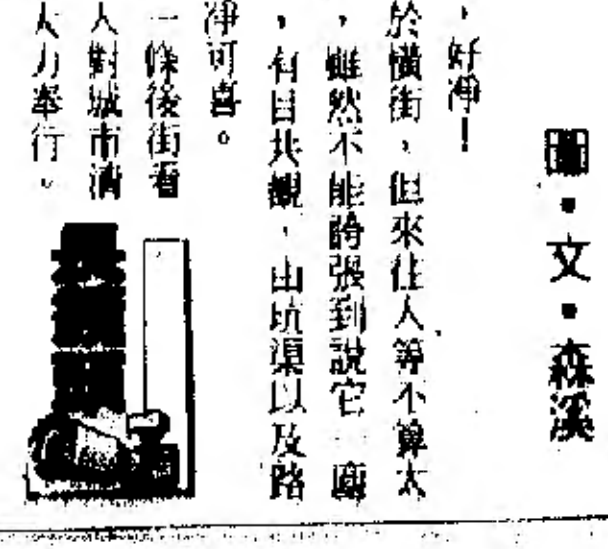 圖•文•森溪
，好淨！
於橫街，但來往人等不算太
，雖然不能誇張到說它一塵
，有目共覩，由坑渠以及路
淨可喜。
一條後街看
人對城市清
大力舉行。